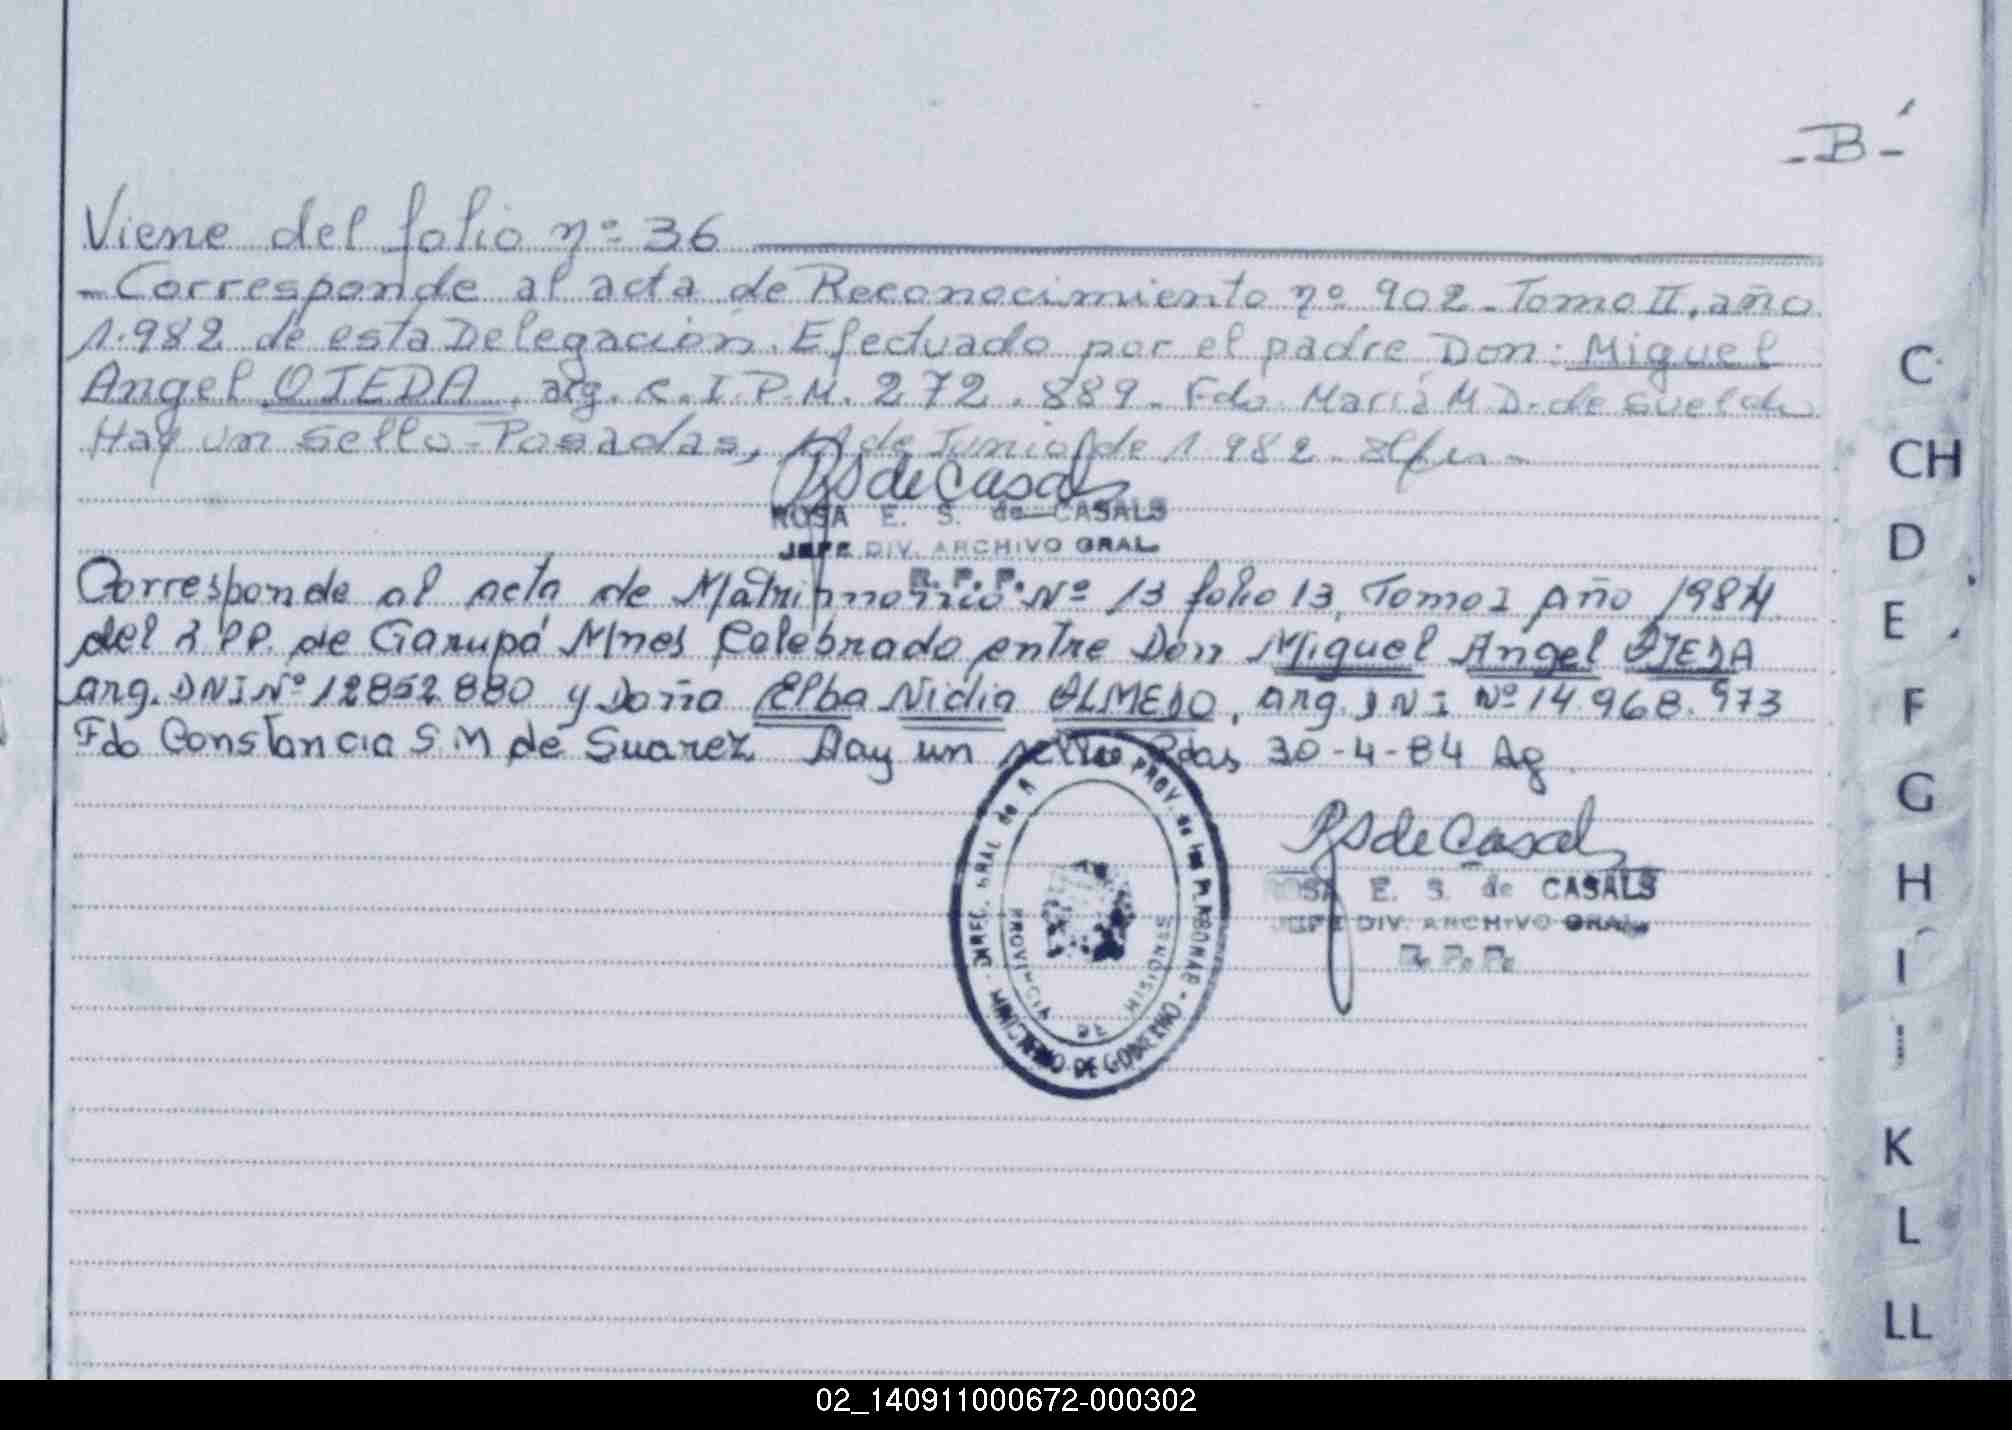 -B-
Viene del folio nº 36
- Corresponde al acta de Reconocimiento nº 902 - Tomo II, año
1.982 de esta Delegación. Efectuado por el padre Don: Miguel
Angel OJEDA, arg. C.I.P.M. 272.889 - Fdo. María M D. de Sueldo
Hay un sello - Posadas, de Junio de 1.982 -
RS de Casals
ROSA E. S. de CASALS
JEFE DIV. ARCHIVO GRAL.
R. P. P.
Corresponde al acta de Matrimonio Nº 13 folio 13, Tomo I Año 1984
del R PP. de Garupá Mnes Celebrado entre Don Miguel Angel OJEDA
arg. DNI Nº 12852.880 y Doña Elba Nidia OLMEDO, arg. DNI Nº 14.968.973
Fdo Constancia S. M de Suarez Hay un sello Pdas 30-4-84 Ag
DIREC. GRAL de R PROV. de las PERSONAS - MINISTERIO DE GOBIERNO -
PROVINCIA DE MISIONES
RS de Casals
ROSA E. S. de CASALS
JEFE DIV. ARCHIVO GRAL.
R. P. P.
C
CH
D
E
F
G
H
I
J
K
L
LL
02_140911000672-000302